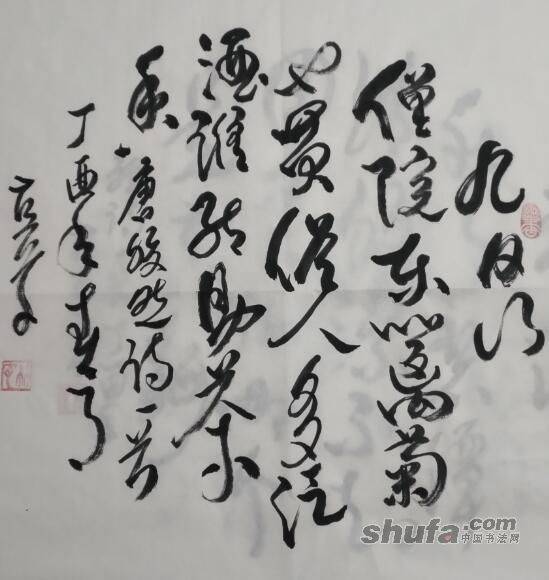 九日山
僧院东篱菊
也黄俗人多泛
酒谁解助茶
香 唐皎然诗一首
丁酉年春月
shufa.com
中国书法网